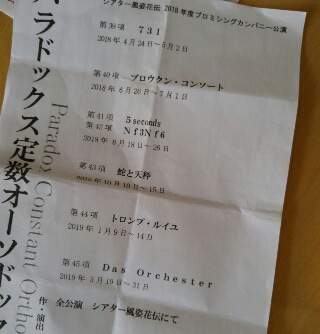 シアター風姿花伝 2018年度プロミシングカンパニー公演
第39項 731
2018年4月24日～5月2日
第40項 ブロウクン・コンソート
2018年6月26日～7月1日
第41項 5seconds
第42項 Nf3Nf6
2018年8月18～26日
第43項 蛇と天秤
2018年10月10日～15日
第44項 トロンプ・ルイユ
2019年1月9日～14日
第45項 Das Orchester
2019年3月19～31日
作・演出
全公演 シアター風姿花伝にて
ラドックス定数オーソドック
Paradox Constant Ortho